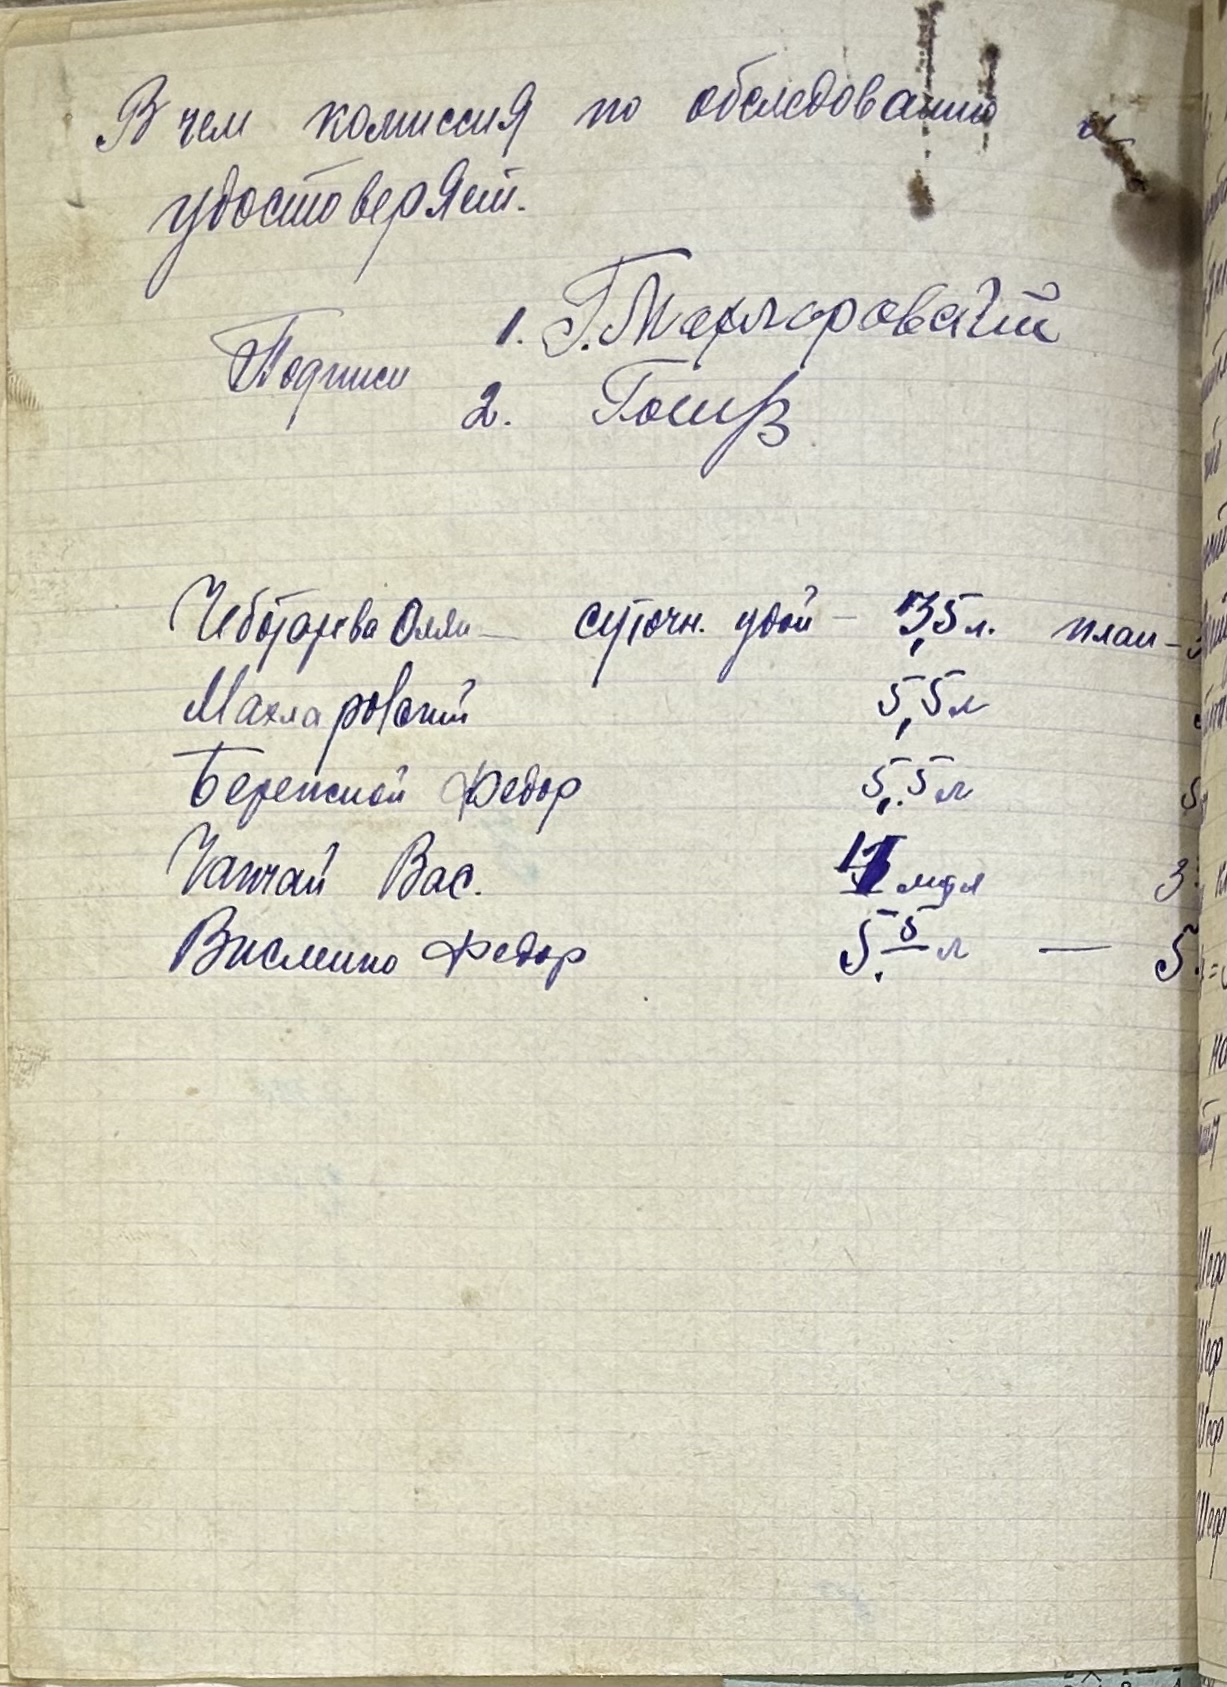 В чем комиссия по обследованию и
удостоверяет.
Подписи 1. Г. Махларовский
2.
Чеботарева Олли – суточн. удой – 3,5 л. план –
Махларовский 5,5 л
Бережной Федор 5,5 л
Чапчай Вас. 3
Висленко Федор 5,5 л — 5